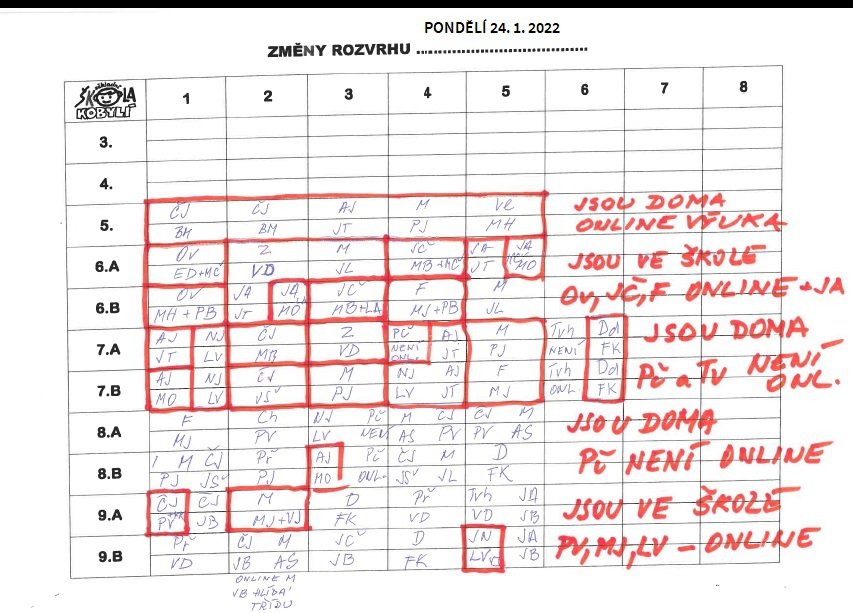 PONDĚLÍ 24. 1. 2022
ZMĚNY ROZVRHU
základní
ŠKOLA
KOBYLÍ
1 2 3 4 5 6 7 8
3.
4.
5. ČJ ČJ AJ M Vl JSOU DOMA
BM BM JT PJ MH ONLINE VÝUKA
6.A OV Z M JČ JA JA JSOU VE ŠKOLE
ED+MČ VD JL MB+MČ JT MO
6.B OV JA JA JČ F M OV, JČ, F ONLINE + JA
MH + PB JT MO MB+LA MJ+PB JL
7.A AJ NJ ČJ Z PČ AJ M Tvh Dd JSOU DOMA
JT LV MB VD NENÍ ONL. JT PJ NENÍ FK
7.B AJ NJ ČJ M NJ AJ F Tvh Dd Pč a Tv NENÍ ONL.
MO LV JSV PJ LV JT MJ ONL FK
8.A F Ch NJ Pč M ČJ ČJ M JSOU DOMA
MJ PV LV NENÍ AS PV PV AS
8.B M ČJ Př AJ Pč ČJ M D Pč NENÍ ONLINE
PJ JSV PJ MO ONL. JSV JL FK
9.A ČJ ČJ M D Př Tvh JA JSOU VE ŠKOLE
PV JB MJ+VJ FK VD VD JB
9.B Př ČJ M JČ D JN JA PV, MJ, LV – ONLINE
VD JB AS JB FK LV JB
ONLINE M
JB HLÍDÁ
TŘÍDU